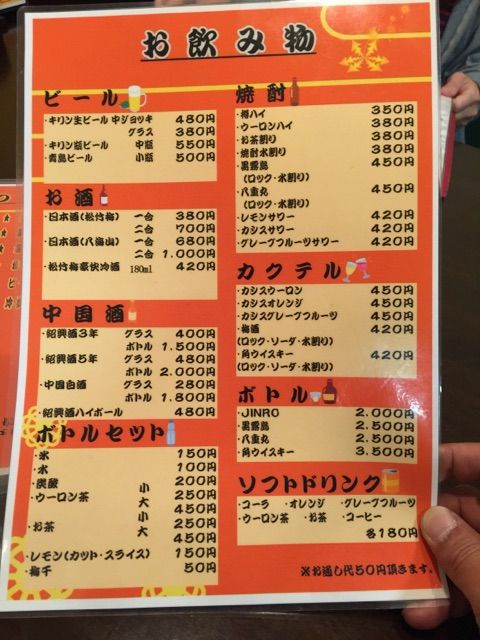 お飲み物
ビール
・キリン生ビール 中ジョッキ 480円
グラス 380円
・キリン瓶ビール 中瓶 550円
・青島ビール 小瓶 500円
お酒
・日本酒(松竹梅) 一合 380円
二合 700円
・日本酒(八海山) 一合 680円
二合 1,000円
・松竹梅豪快冷酒 180ml 420円
中国酒
・紹興酒3年 グラス 400円
ボトル 1,500円
・紹興酒5年 グラス 480円
ボトル 2,000円
・中国白酒 グラス 280円
ボトル 1,800円
・紹興酒ハイボール 480円
ボトルセット
・氷 150円
・水 100円
・炭酸 200円
・ウーロン茶 小 250円
大 450円
・お茶 小 250円
大 450円
・レモン(カット・スライス) 150円
・梅干 50円
焼酎
・樽ハイ 350円
・ウーロンハイ 380円
・お茶割り 380円
・焼酎水割り 380円
・黒霧島 450円
(ロック・水割り)
・八重丸 450円
(ロック・水割り)
・レモンサワー 420円
・カシスサワー 420円
・グレープフルーツサワー 420円
カクテル
・カシスウーロン 450円
・カシスオレンジ 450円
・カシスグレープフルーツ 450円
・梅酒 420円
(ロック・ソーダ・水割り)
・角ウイスキー 420円
(ロック・ソーダ・水割り)
ボトル
・JINRO 2,000円
・黒霧島 2,500円
・八重丸 2,500円
・角ウイスキー 3,500円
ソフトドリンク
・コーラ ・オレンジ ・グレープフルーツ
・ウーロン茶 ・お茶 ・コーヒー
各180円
※お通し代50円頂きます。